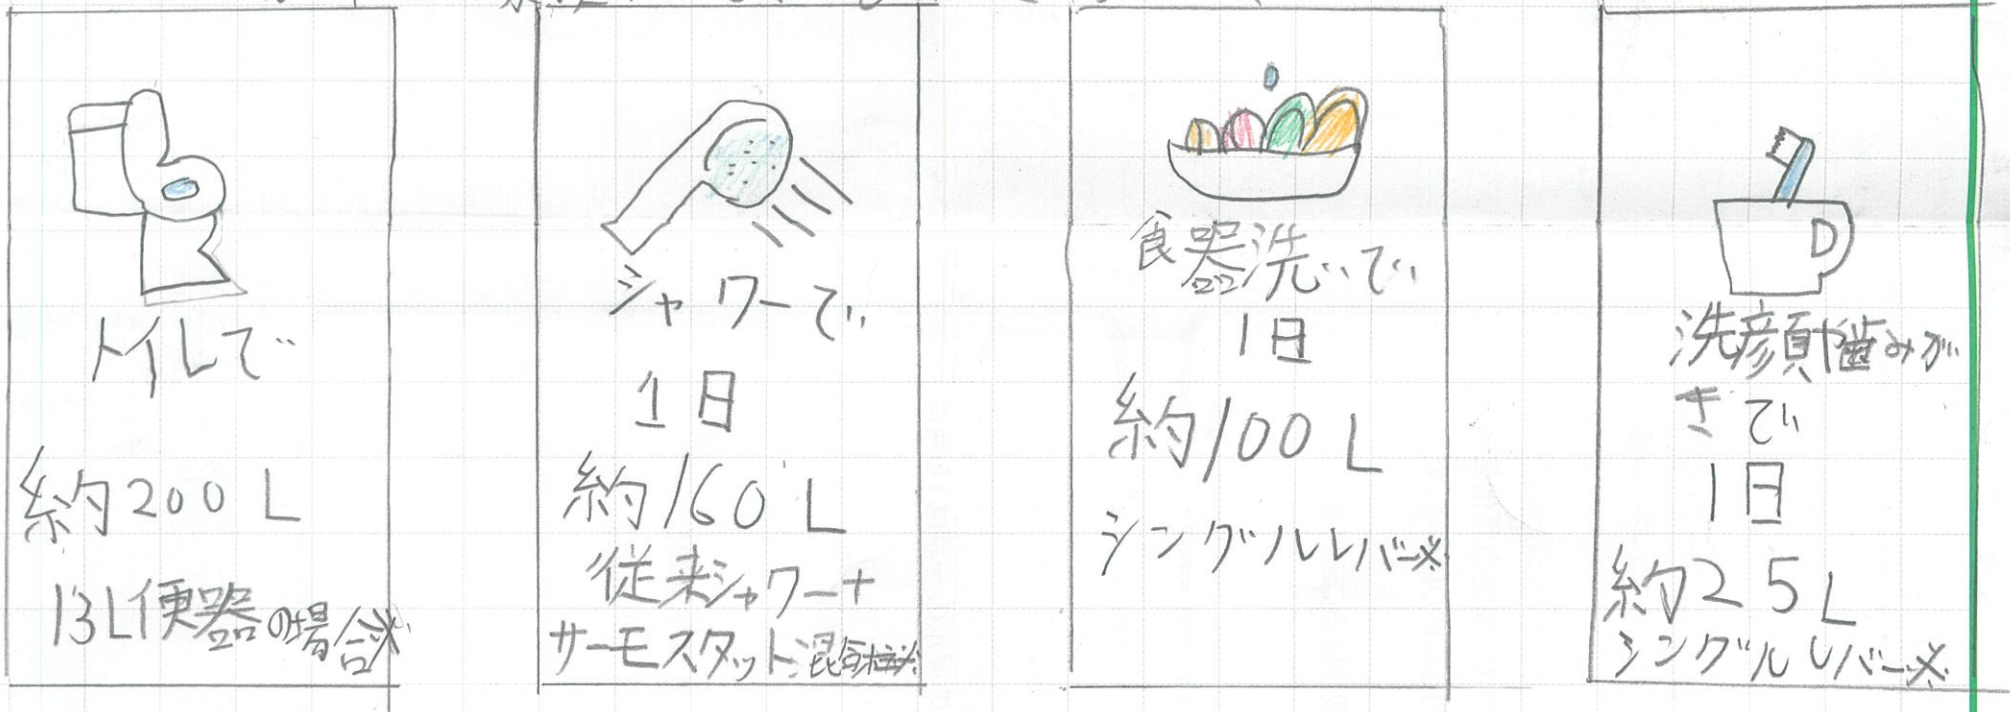 トイレで
約200L
13L便器の場合※
シャワーで
1日
約160L
従来シャワー+
サーモスタット混合栓※
食器洗いで
1日
約100L
シングルレバー※
洗顔や歯みが
きで
1日
約25L
シングルレバー※